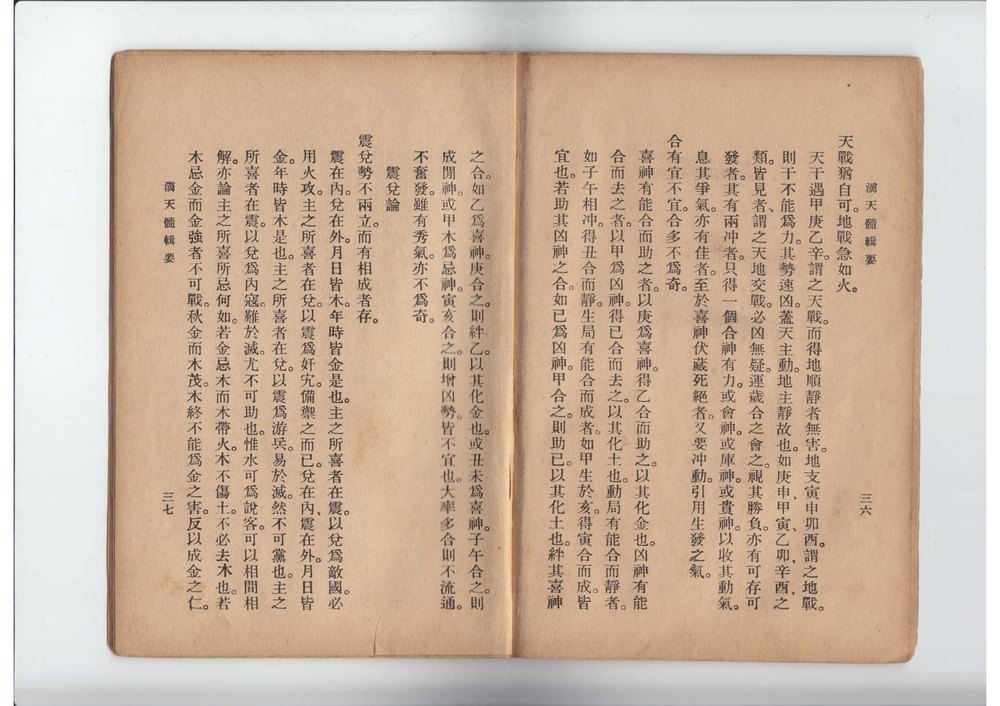 滴天髓輯要
三六
天戰猶自可。地戰急如火。
天干遇甲庚乙辛謂之天戰。而得地順靜者無害。地支寅申卯酉。謂之地戰。
則干不能爲力。其勢速凶。蓋天主動。地主靜故也。如庚申、甲寅、乙卯、辛酉、之
類。皆見者。謂之天地交戰。必凶無疑。運歲合之會之。視其勝負。亦有可存可
發者。其有兩冲者。只得一個合神有力。或會神。或庫神。或貴神。以收其動氣。
息其爭氣。亦有佳者。至於喜神伏藏死絕者。又要冲動。引用生發之氣。
合有宜不宜。合多不爲奇。
喜神有能合而助之者。以庚爲喜神。得乙合而助之。以其化金也。凶神有能
合而去之者。以甲爲凶神。得己合而去之。以其化土也。動局有能合而靜者。
如子午相冲。得丑合而靜。生局有能合而成者。如甲生於亥。得寅合而成。皆
宜也。若助其凶神之合。如己爲凶神。甲合之。則助已。以其化土也。絆其喜神
之合。如乙爲喜神。庚合之。則絆乙。以其化金也。或丑未爲喜神。子午合之。則
成閒神。或甲木爲忌神。寅亥合之。則增凶勢。皆不宜也。大率多合則不流通。
不奮發。雖有秀氣。亦不爲奇。
震兌論
震兌勢不兩立。而有相成者存。
震在內。兌在外。月日皆木。年時皆金是也。主之所喜者在震。以兌爲敵國。必
用火攻。主之所喜者在兌。以震爲奸宄。備禦之而已。兌在內。震在外。月日皆
金。年時皆木是也。主之所喜者在兌。以震爲游兵。易於滅。然不可黨也。主之
所喜者在震。以兌爲內寇。難於滅。尤不可助也。惟水可爲說客。可以相間相
解。亦論主之所喜所忌何如。若金忌木而木帶火。木不傷土。不必去木也。若
木忌金而金強者不可戰。秋金而木茂。木終不能爲金之害。反以成金之仁。
滴天髓輯要
三七